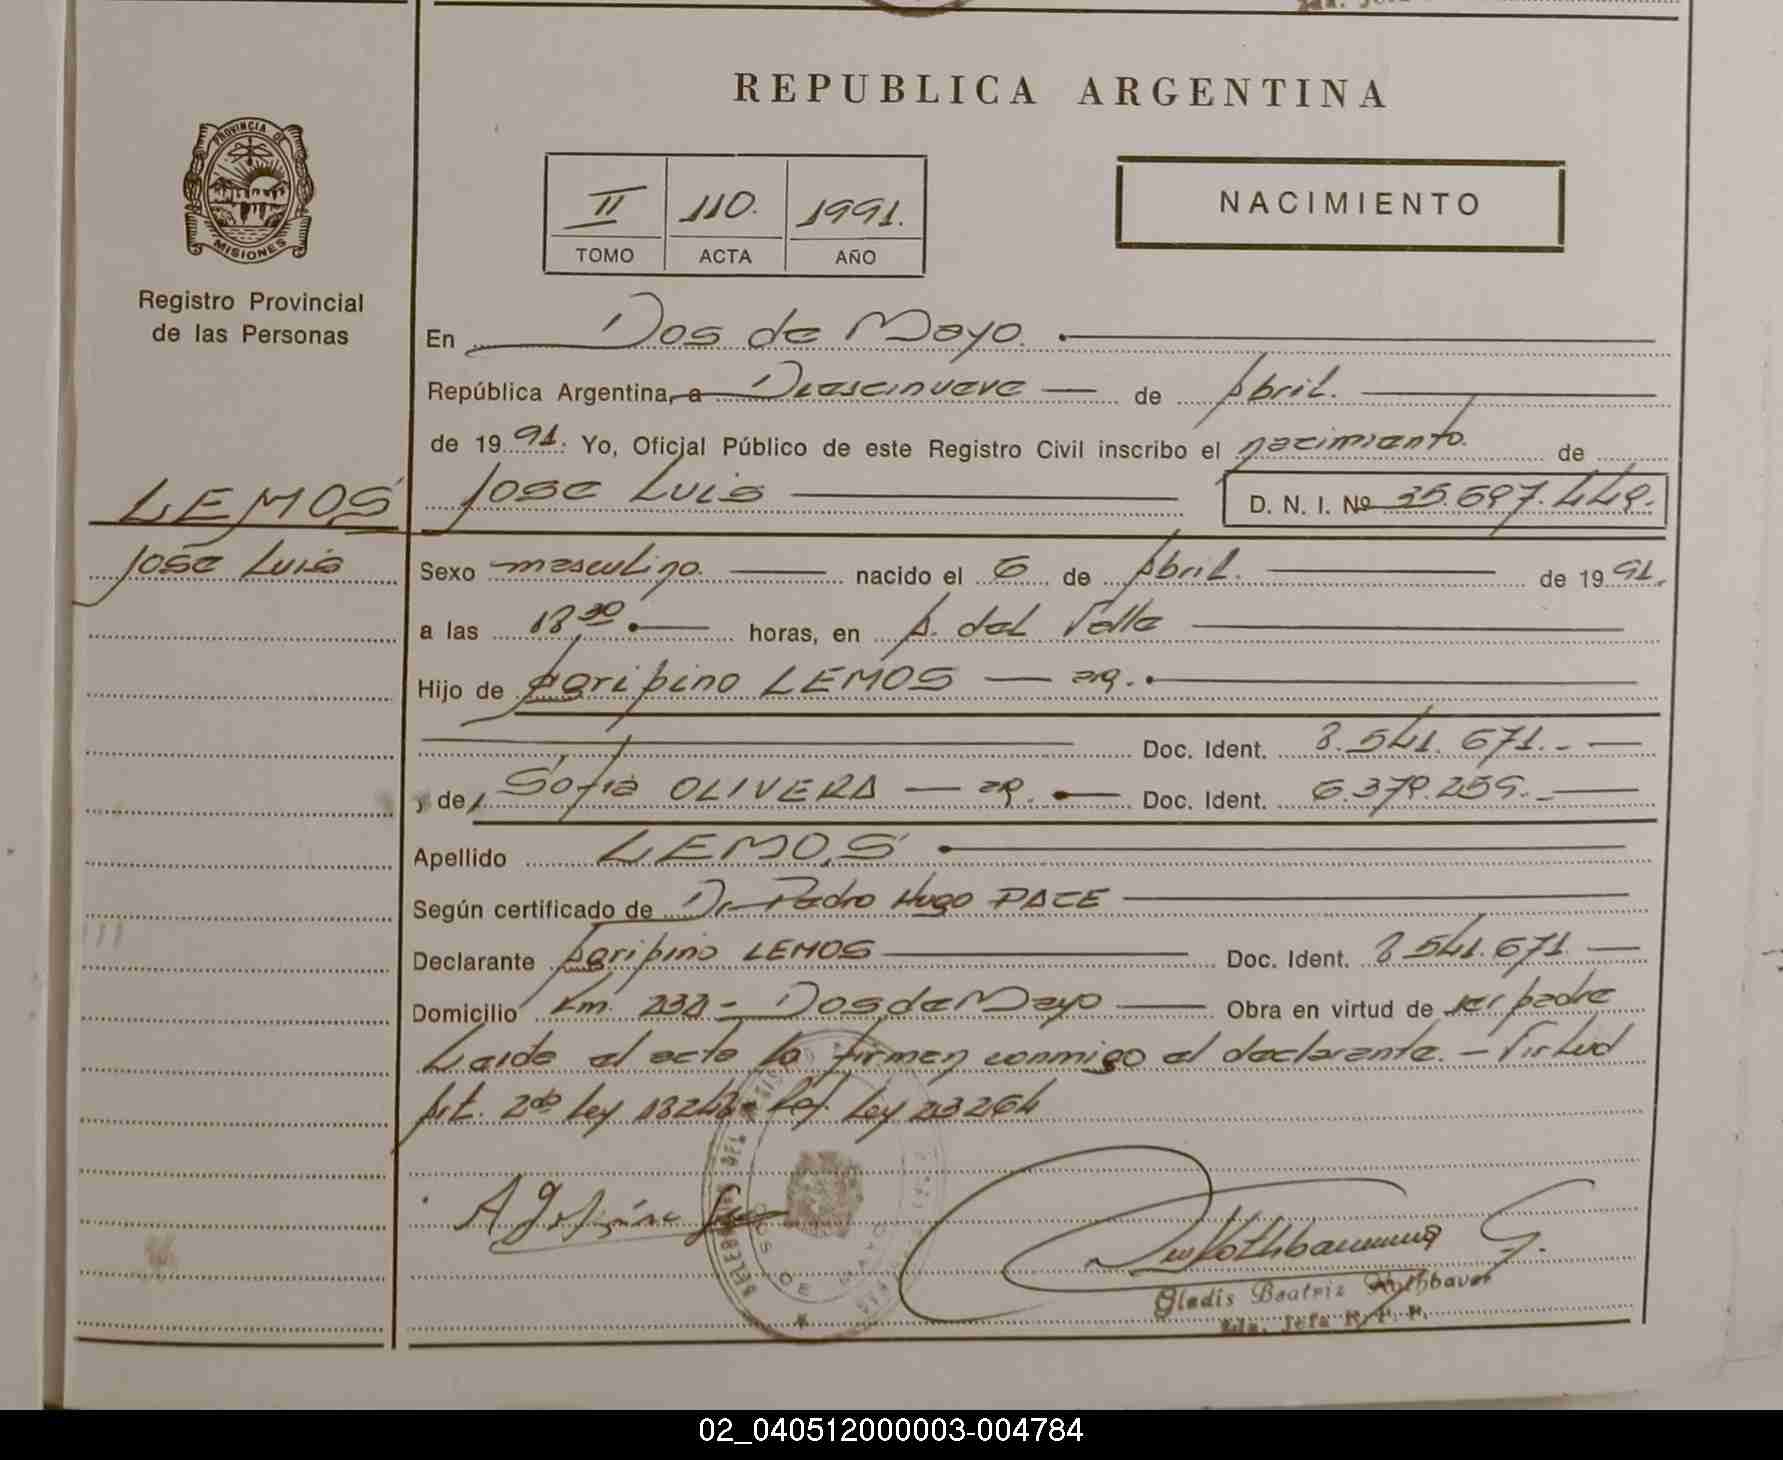 REPUBLICA ARGENTINA
PROVINCIA DE
MISIONES
Registro Provincial
de las Personas
II 110. 1991.
TOMO ACTA AÑO
NACIMIENTO
En Dos de Mayo.
República Argentina, a Diescinueve de Abril.
de 19 91. Yo, Oficial Público de este Registro Civil inscribo el nacimiento de
Jose Luis D. N. I. Nº 35.697.449.
LEMOS
Jose Luis
Sexo masculino. nacido el 6 de Abril. de 19 91.
a las 18 30 horas, en A. del Valle
Hijo de Agripino LEMOS — ar.
Doc. Ident. 8.541.671.-
y de Sofia OLIVERA — ar. Doc. Ident. 6.379.259.-
Apellido LEMOS
Según certificado de Dr. Pedro Hugo PACE
Declarante Agripino LEMOS Doc. Ident. 8 541.671
Domicilio Km. 232 - Dos de Mayo Obra en virtud de ser padre
Leida el acta la firman conmigo el declarante. - Virtud
Art. 2do Ley 18248 - Ref. Ley 23264
Gladis Beatriz Rothbauer
2da. Jefa R. P. P.
DOS DE MAYO
02_040512000003-004784